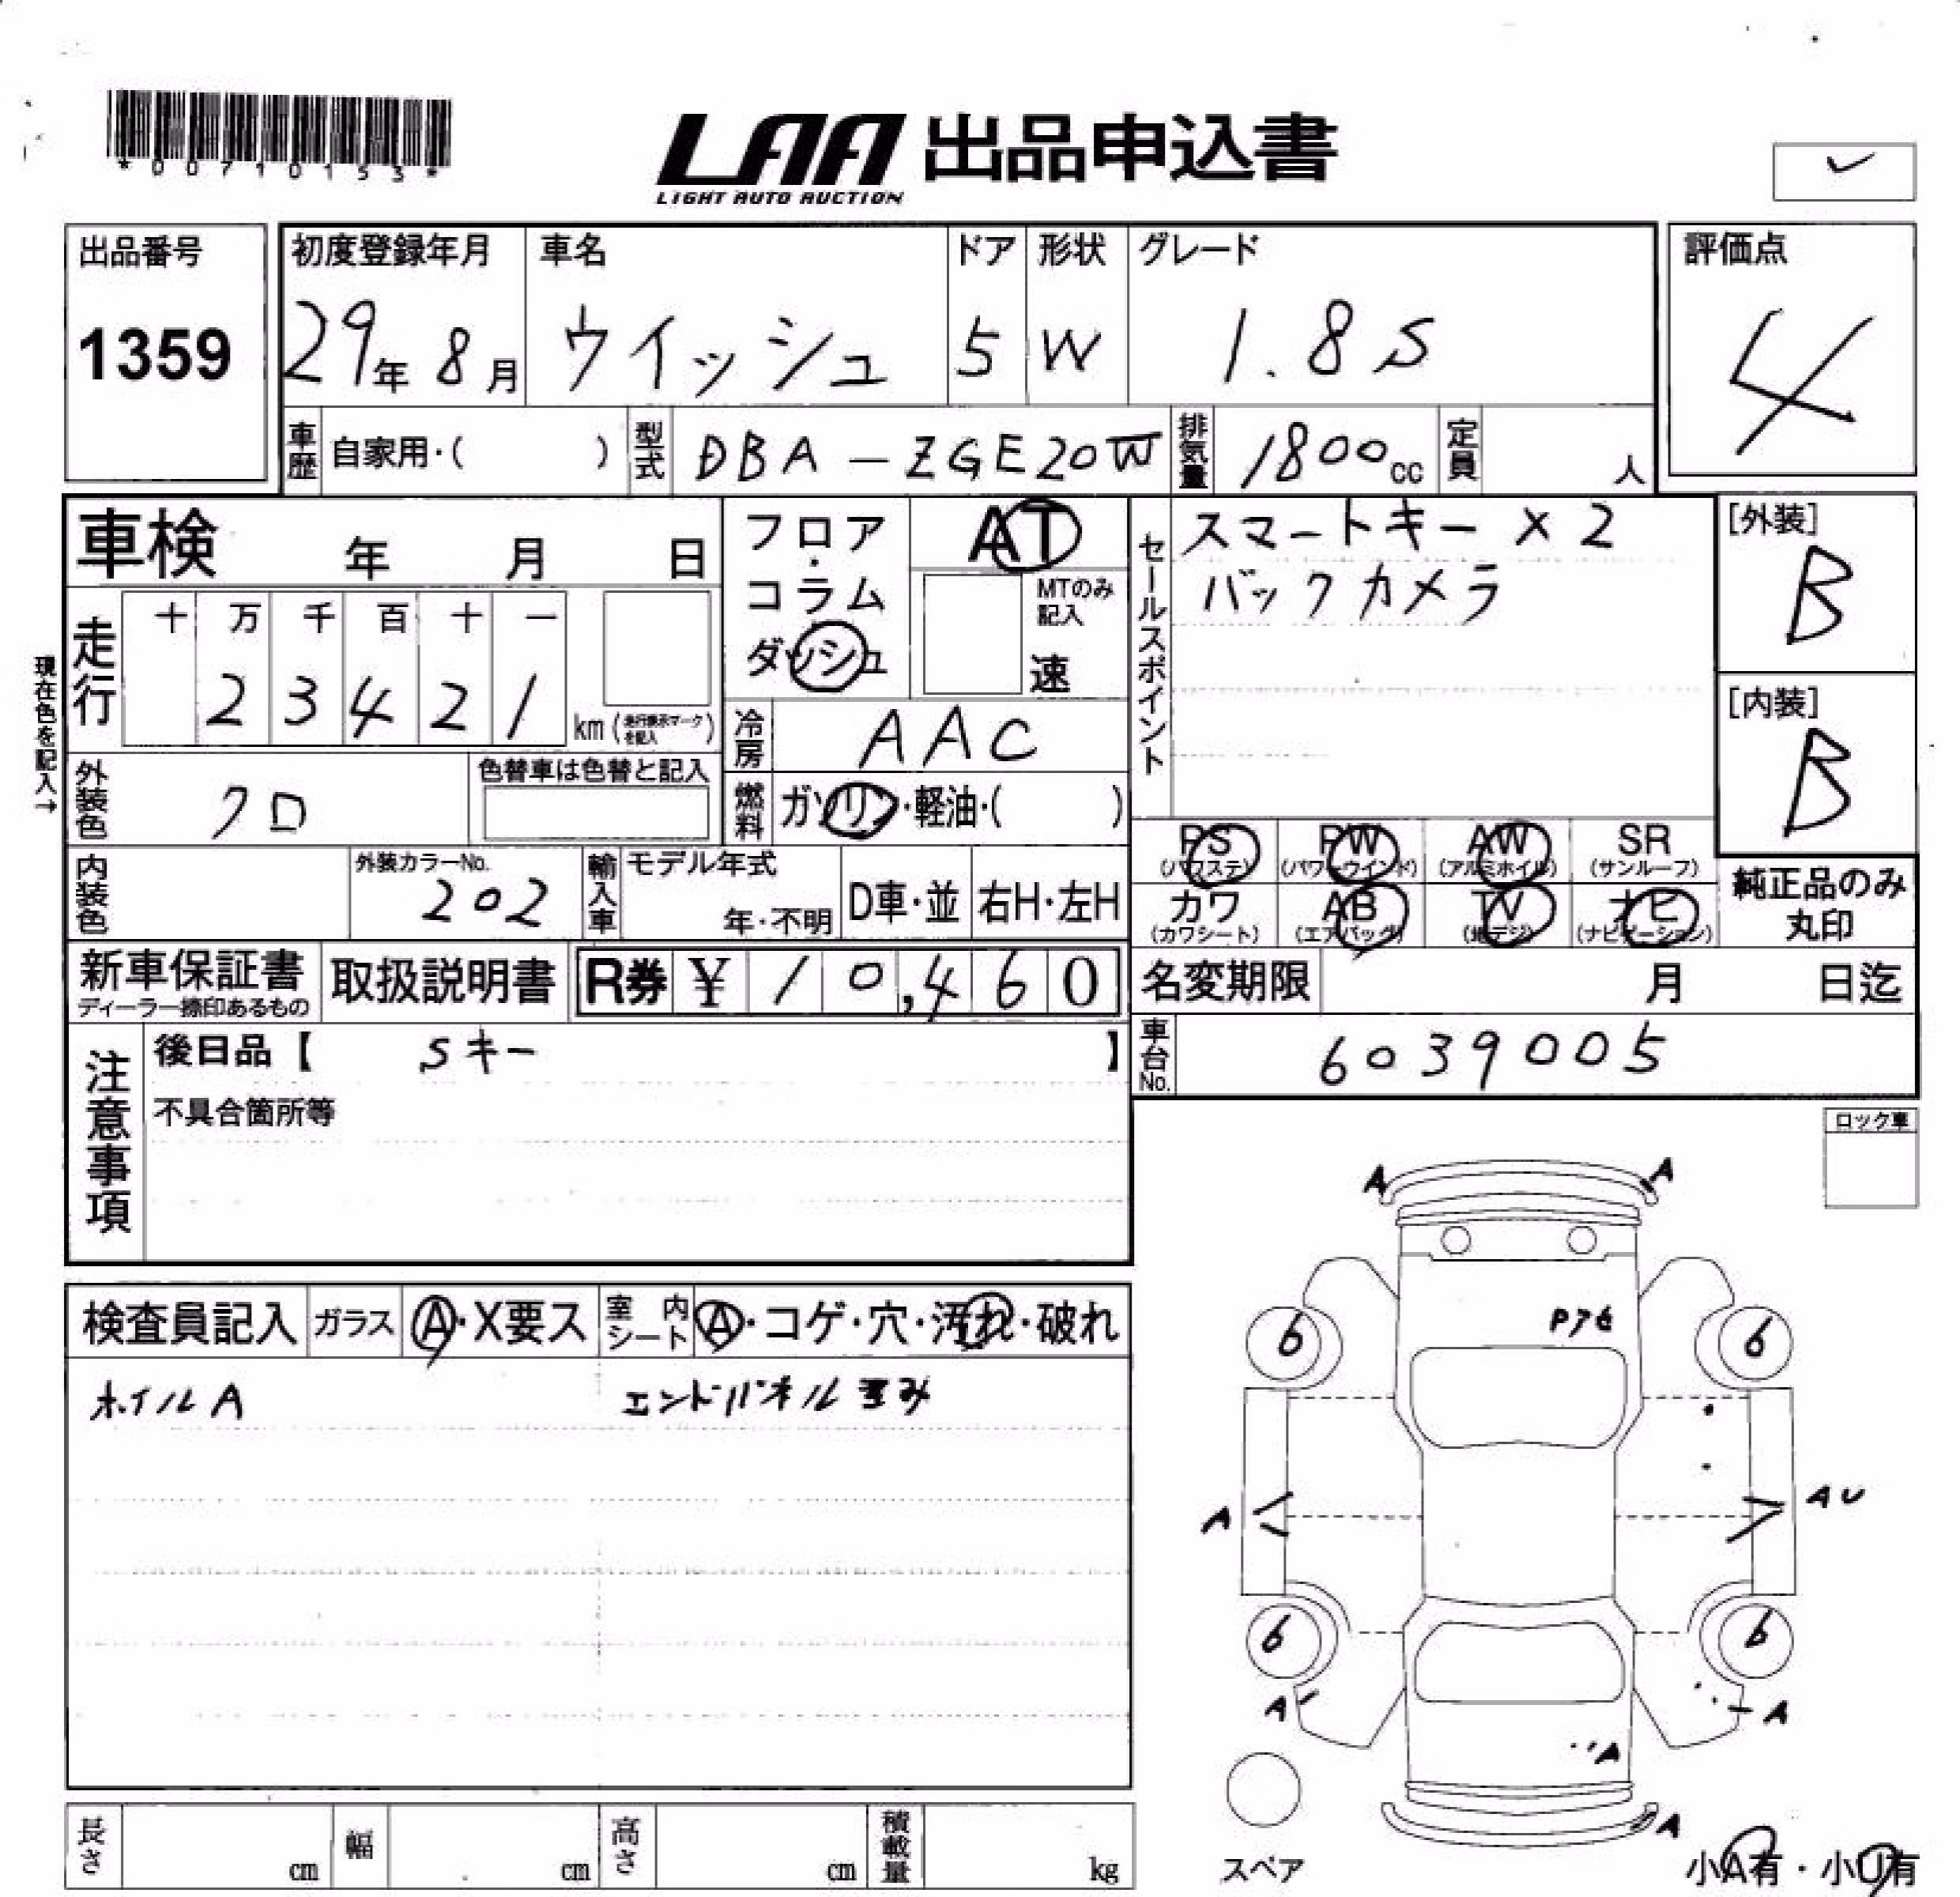 *00710153*
LAA 出品申込書
LIGHT AUTO AUCTION
出品番号
1359
初度登録年月
29年 8月
車名
ウイッシュ
ドア
5
形状
W
グレード
1.8S
評価点
4
車歴 自家用・( )
型式 DBA-ZGE20W
排気量 1800cc
定員 人
車検 年 月 日
フロア・コラム・ダッシュ
AT
MTのみ記入
速
セールスポイント
スマートキー×2
バックカメラ
[外装]
B
[内装]
B
現在色を記入→
走行
十 万 千 百 十 一
2 3 4 2 1 km
冷房 AAC
外装色 クロ
色替車は色替と記入
燃料 ガソリン・軽油・( )
PS (パワステ)
PW (パワーウインド)
AW (アルミホイル)
SR (サンルーフ)
カワ (カワシート)
AB (エアバッグ)
TV (地デジ)
ナビ (ナビゲーション)
純正品のみ
丸印
内装色
外装カラーNo.
202
輸入車
モデル年式
年・不明
D車・並
右H・左H
新車保証書
ディーラー捺印あるもの
取扱説明書
R券 ¥ 10,460
名変期限 月 日迄
車台No. 6039005
注意事項
後日品【 Sキー 】
不具合箇所等
ロック車
検査員記入
ガラス A・X要ス
室内シート A・コゲ・穴・汚れ・破れ
ホイルA
エンドパネル歪み
A A
6 6
A AU
6 6
A A
A
A
スペア
小A有・小U有
長さ cm
幅 cm
高さ cm
積載量 kg